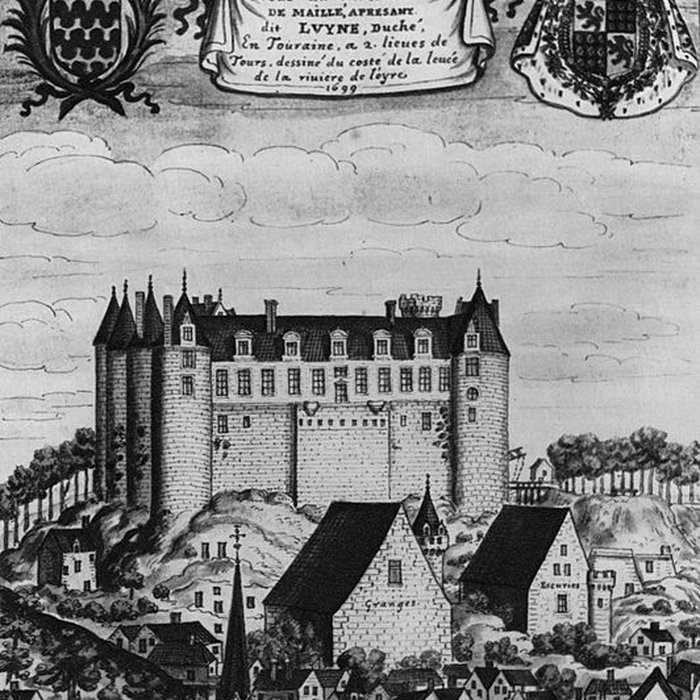 DE MAILLÉ, APRESANT
dit LVYNE, Duché,
En Touraine, a 2. lieues de
Tours. dessiné du costé de la leueé
de la riuiere de loyre
1699
Granges.
Escuries